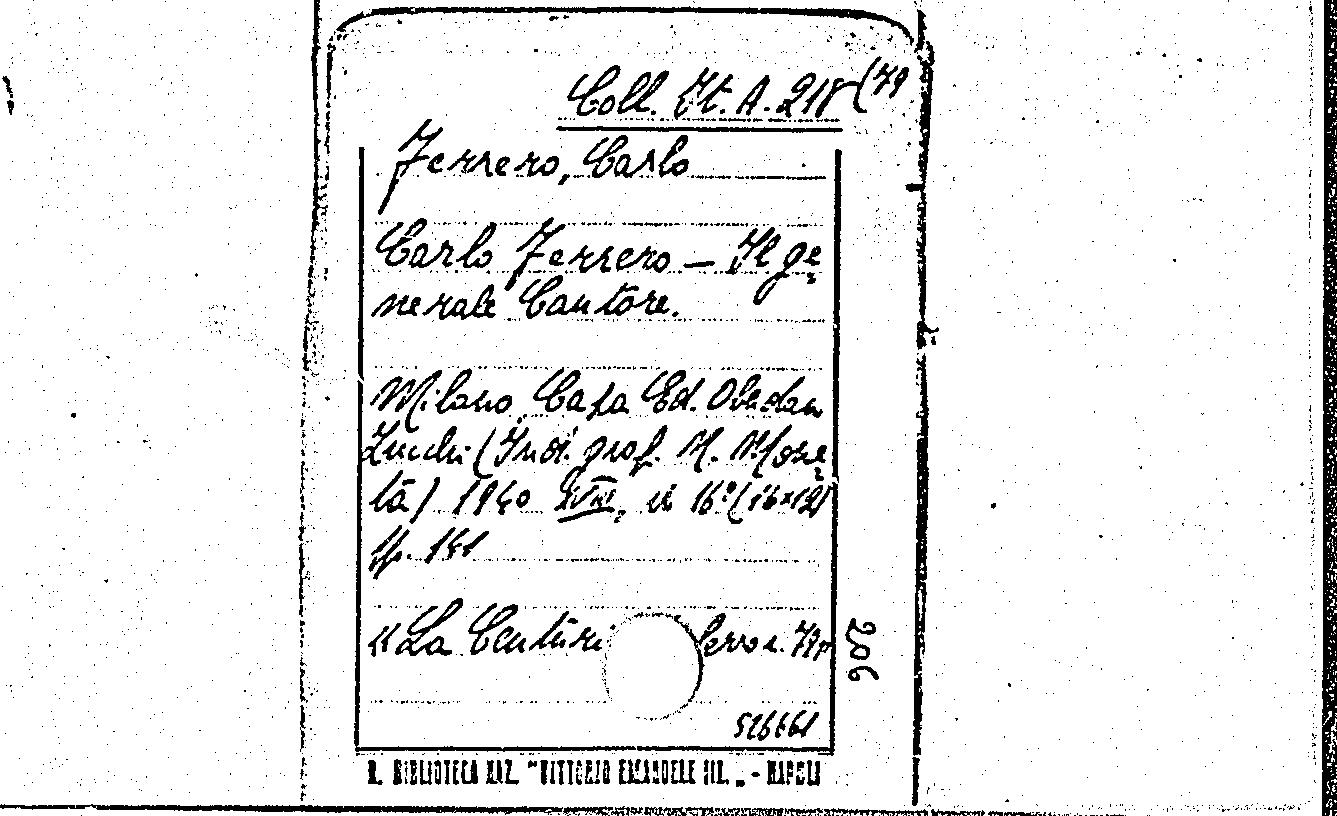 Coll. It. A. 218 (79
Ferrero, Carlo
Carlo Ferrero – Il ge=
nerale Cantore.
Milano Casa Ed. Oberdan
Zucchi (Indi. prof. M. More=
tà) 1940 XVIII, in 16° (16x12)
pp. 141
« La Centuri
206
526661
R. BIBLIOTECA NAZ. "VITTORIO EMANUELE III. „ - NAPOLI